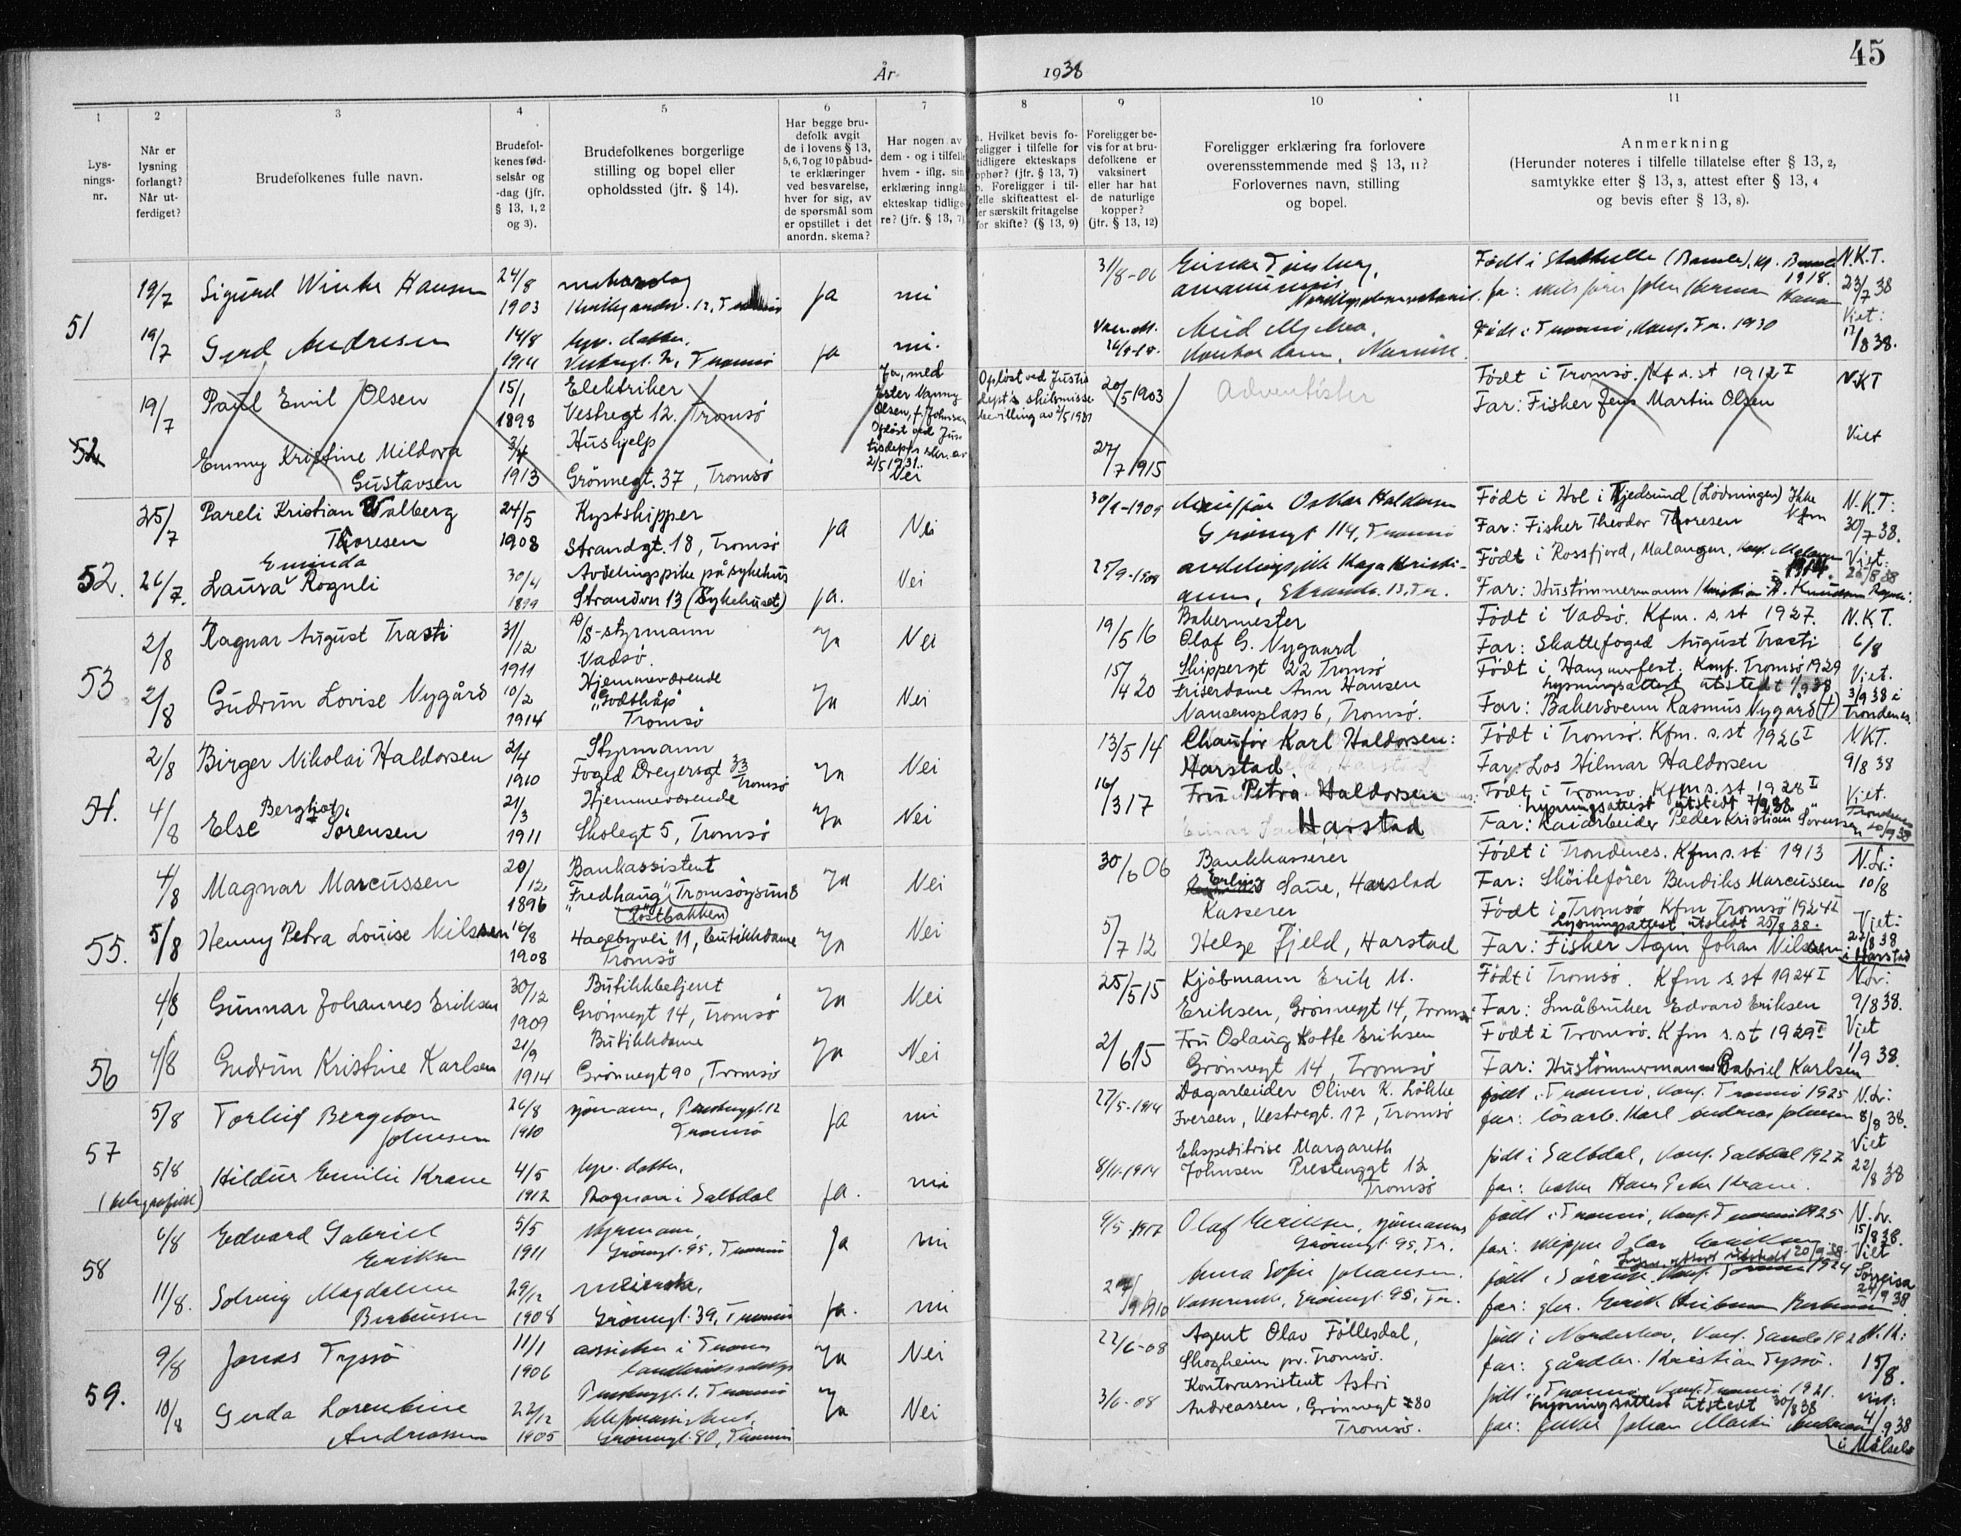 45
År 1938
1
2
3
4
5
6
7
8
9
10
11
Lysningsnr.
Når er lysning forlangt? Når utferdiget?
Brudefolkenes fulle navn.
Brudefolkenes fødselsår og -dag (jfr. § 13, 1, 2 og 3).
Brudefolkenes borgerlige stilling og bopel eller opholdssted (jfr. § 14).
Har begge brudefolk avgit de i lovens § 13, 5, 6, 7 og 10 påbudte erklæringer ved besvarelse, hver for sig, av de spørsmål som er opstillet i det anordn. skema?
Har nogen av dem - og i tilfelle hvem - iflg. sin erklæring inngå ekteskap tidligere? (jfr. § 13, 7)
a. Hvilket bevis foreligger i tilfelle for tidligere ekteskaps ophør? (jfr. § 13, 7) b. Foreligger i tilfelle skifteattest eller særskilt fritagelse for skifte? (§ 13, 9)
Foreligger bevis for at brudefolkene er vaksinert eller har hat de naturlige kopper? (jfr. § 13, 12)
Foreligger erklæring fra forlovere overensstemmende med § 13, 11? Forlovernes navn, stilling og bopel.
Anmerkning (Herunder noteres i tilfelle tillatelse efter § 13, 2, samtykke efter § 13, 3, attest efter § 13, 4 og bevis efter § 13, 8).
51
19/7 Sigurd Hansen 24/8 1903 ja nei 31/8-06 N.K.T. 23/7 38
19/7 Gerd Andresen 14/8 Tromsø ja nei. Født i Tromsø, konf. Tr. 1930 Viet: 17/8 38.
52
19/7 Paul Emil Olsen 15/1 1898 Elektriker Vestregt 12. Tromsø
Ja, med Ester Nanny Olsen, f. Johnsen
Opløst ved Justisdept's skilsmisse bevilling av 2/5 1931
20/5 1903 Adventister
Født i Tromsø. Kf m. s. st 1912 I
Far: Fisker Jens Martin Olsen
N.K.T
Emmy Kristine Mildora Gustavsen 3/4 1913 Hushjelp Grønnegt. 37, Tromsø Nei 27/7 1915 Viet
52.
25/7 Pareli Kristian Valberg Thoresen 24/5 1908 Kystskipper Strandgt. 18, Tromsø ja Nei
Oskar Haldorsen
Grønnegt 114, Tromsø
Født i Hol i Tjeldsund (Lødningen) Ikke Kfm
Far: Fisker Theodor Thoresen
N.K.T: 30/7 38.
26/7. Laura Eminda Rognli 30/4 Avdelingspike på sykehus Strandvn 13 (Sykehuset) ja. Nei 25/9-1908
Født i Rossfjord, Malangen,
Far: Hustømmermann
Viet: 26/8 38
53
2/8 Ragnar August Trasti 31/12 1911 styrmann Vadsø. Ja Nei 19/5 16
Bakermester
Olaf G. Nygaard
Skippergt 22 Tromsø
Født i Vadsø. Kfm. s. st 1927.
Far: Skattefoged August Trasti
N.K.T. 6/8
2/8 Gudrun Lovise Nygård 10/2 1914 Hjemmeværende "Godthåp" Tromsø Ja Nei 15/4 20
Friserdame Ann Hansen
Nansensplass 6, Tromsø.
Født i Hammerfest. Konf. Tromsø 1929
Lysningsattest utstedt 1/9 38
Far: Bakersvenn Rasmus Nygård (†)
Viet. 3/9 38 i Trondenes.
54.
2/8 Birger Nikolai Haldorsen 2/4 1910 Styrmann Foged Dreyersgt 33 Tromsø Ja Nei 13/5 14
Chaufør Karl Haldorsen:
Harstad.
Født i Tromsø. Kfm. s. st 1926 I
Far: Los Hilmar Haldorsen
N.K.T. 9/8 38
4/8 Else Bergliot Sørensen 21/3 1911 Hjemmeværende Skolegt 5, Tromsø Ja Nei 16/3 17
Fru Petra Haldorsen
Harstad
Født i Tromsø. Kfm s. st 1928 I
Lysningsattest utstedt 7/9 38
Far: Kaiarbeider Peder Kristian Sørensen
Viet. Trondenes 10/9 38
55.
4/8 Magnar Marcussen 20/12 1896 Bankassistent "Fredhaug" Tromsøysund Ja Nei 30/6 06
Bankkasserer
Erling Saue, Harstad
Født i Trondenes. Kfm s. st 1913
Far: Skøitefører Bendiks Marcussen
N.Lr.: 10/8
5/8 Henny Petra Louise Nilssen 16/8 1908 Hagebyvei 11, butikkdame Tromsø Ja Nei 5/7 12
Kasserer
Helge Fjeld, Harstad
Født i Tromsø Kfm Tromsø 1924 I
Lysningsattest utstedt 25/8 38.
Far: Fisker Agen Johan Nilssen
Viet: 27/8 38 i Harstad
56
4/8 Gunnar Johannes Eriksen 30/12 1909 Butikkbetjent Grønnegt 14, Tromsø Ja Nei 25/5 15
Kjøbmann Erik M.
Eriksen, Grønnegt 14, Tromsø
Født i Tromsø. Kfm s. st 1924 I
Far: Småbruker Edvard Eriksen
N.Lr: 9/8 38.
4/8 Gudrun Kristine Karlsen 21/9 1914 Butikkdame Grønnegt 90, Tromsø Ja Nei 2/6 15
Fru Oslaug Lotte Eriksen
Grønnegt 14, Tromsø
Født i Tromsø. Kfm s. st 1929 I
Far: Hustømmermann Gabriel Karlsen
Viet 1/9 38.
57
5/8 Torleif Bergeton Johnsen 26/8 1910 sjømann, Prestenggt. 12 Tromsø ja nei 27/5-1914
Dagarbeider Oliver K. Løkke
Iversen, Vestregt. 17, Tromsø
født i Tromsø, konf. Tromsø 1925
far: løsarb. Karl Andreas Johnsen
N.Lr: 8/8 38.
5/8 Hildur Emilie Krane 4/5 1912 Rognan i Saltdal ja. nei 8/11-1914
Ekspeditrise Margareth
Johnsen Prestenggt 12
Tromsø
født i Saltdal, konf. Saltdal 1927
far: Hans Krane.
Viet 22/8 38
58
6/8 Edvard Gabriel Eriksen 5/5 1911 styrmann, Grønnegt. 95, Tromsø ja nei
Olaf Eriksen, sjømann
Grønnegt. 95, Tr.
født i Tromsø, konf. Tromsø 1925
N.Lr. 15/8 38. Viet
11/8. Solveig Magdalene Berteussen 29/12 1908 Grønnegt. 39, Tromsø ja. nei
Anna Sofie Johansen.
Grønnegt. 95, Tr.
Sørreisa 24/9 38
59.
9/8 Jonas Tyssø 11/1 1906 Ja Nei 22/6-08
Agent Olav Føllesdal,
Skogheim pr. Tromsø.
far: gårdbr. Kristian Tyssø.
15/8.
10/8 Gerda Lorentine Andreassen 22/12 1905 Grønnegt. 80, Tromsø Ja Nei 3/6-08
Kontorassistent Astri
Andreassen, Grønnegt 80
Tromsø.
født i Tromsø, konf. Tromsø 1921.
Lysningsattest utstedt 30/8 38
far: fisker Johan Martin Andreassen
viet: 4/9 38
i Målselv